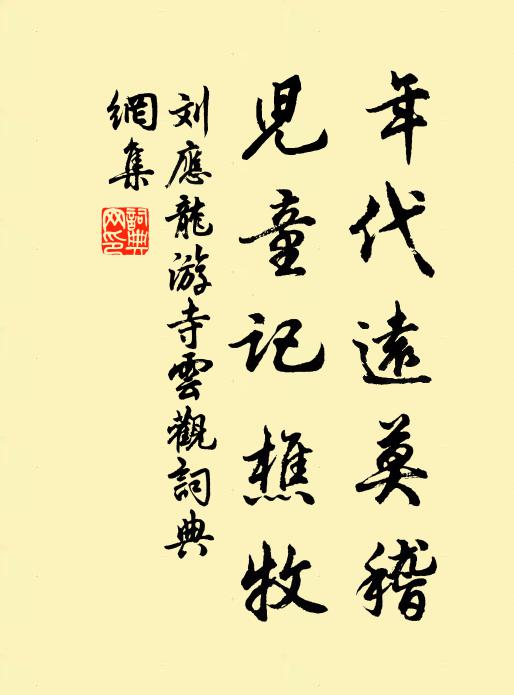 年代遠莫稽
兒童記樵牧
刘應龍游寺雲觀詞典
網集
詞典
网印